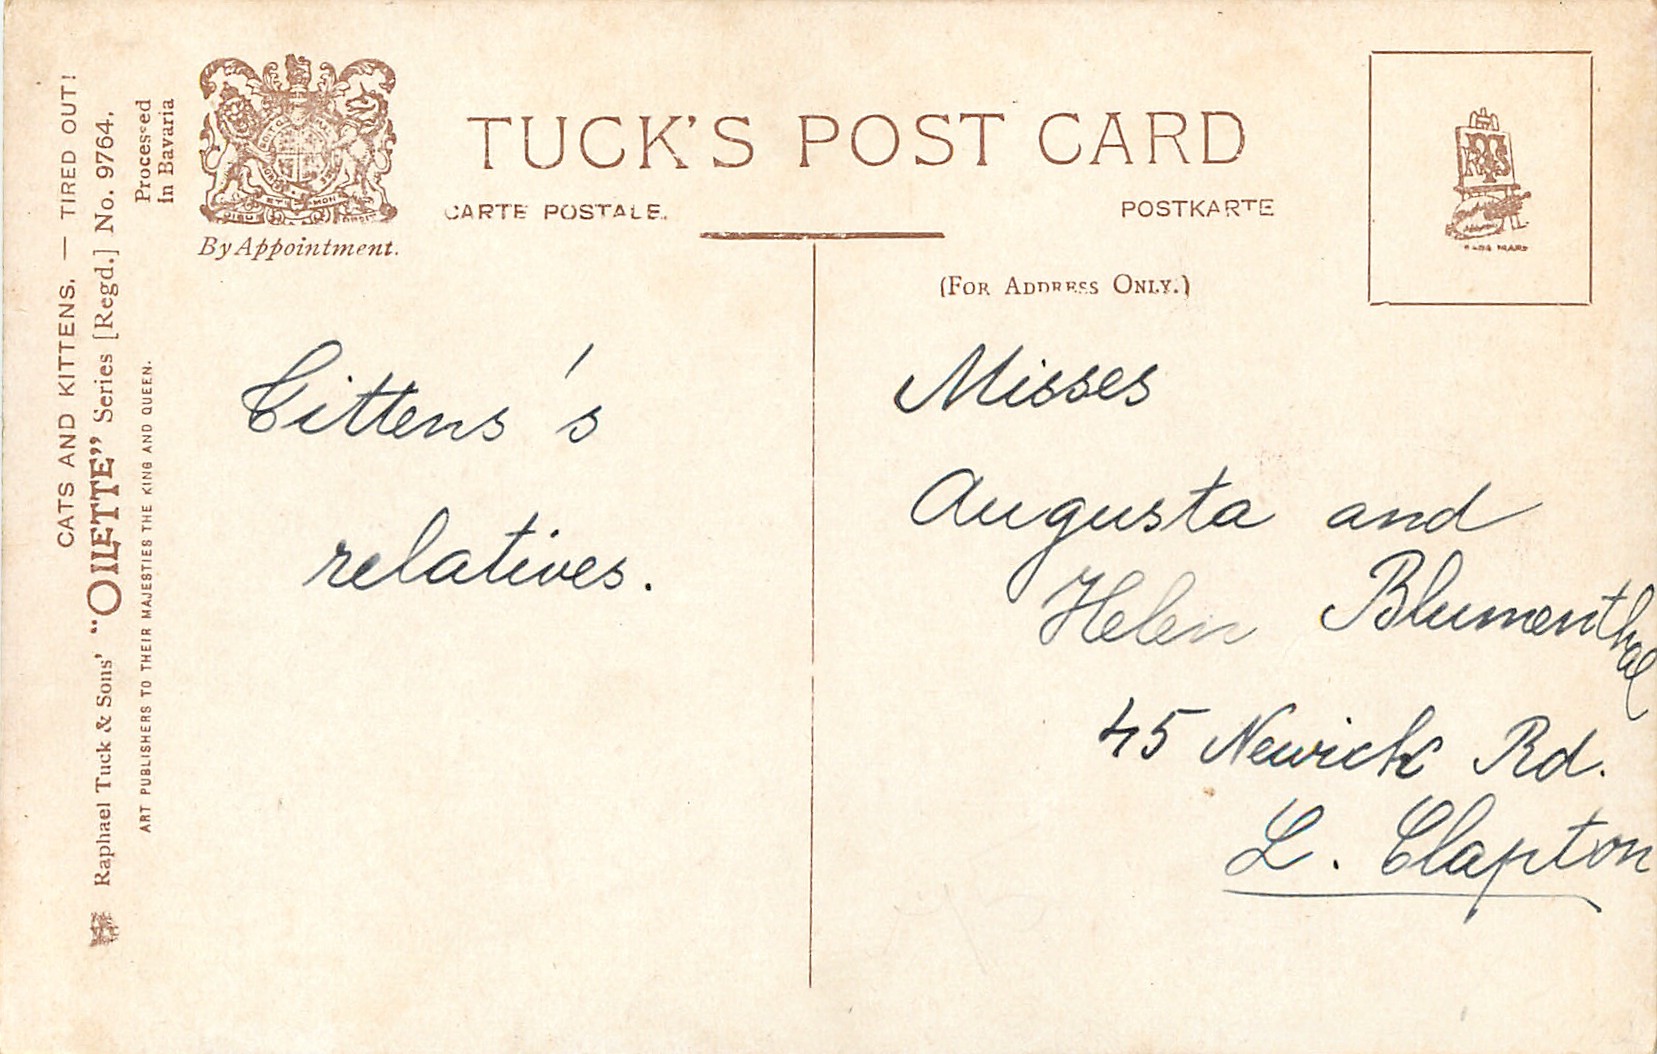 CATS AND KITTENS. — TIRED OUT!
Raphael Tuck & Sons' "OILETTE" Series [Regd.] No. 9764.
ART PUBLISHERS TO THEIR MAJESTIES THE KING AND QUEEN.
Processed
in Bavaria
By Appointment.
TUCK'S POST CARD
CARTE POSTALE.
POSTKARTE
(FOR ADDRESS ONLY.)
Cittens's
relatives.
Misses
Augusta and
Helen Blumenthal
45 Newick Rd.
L. Clapton